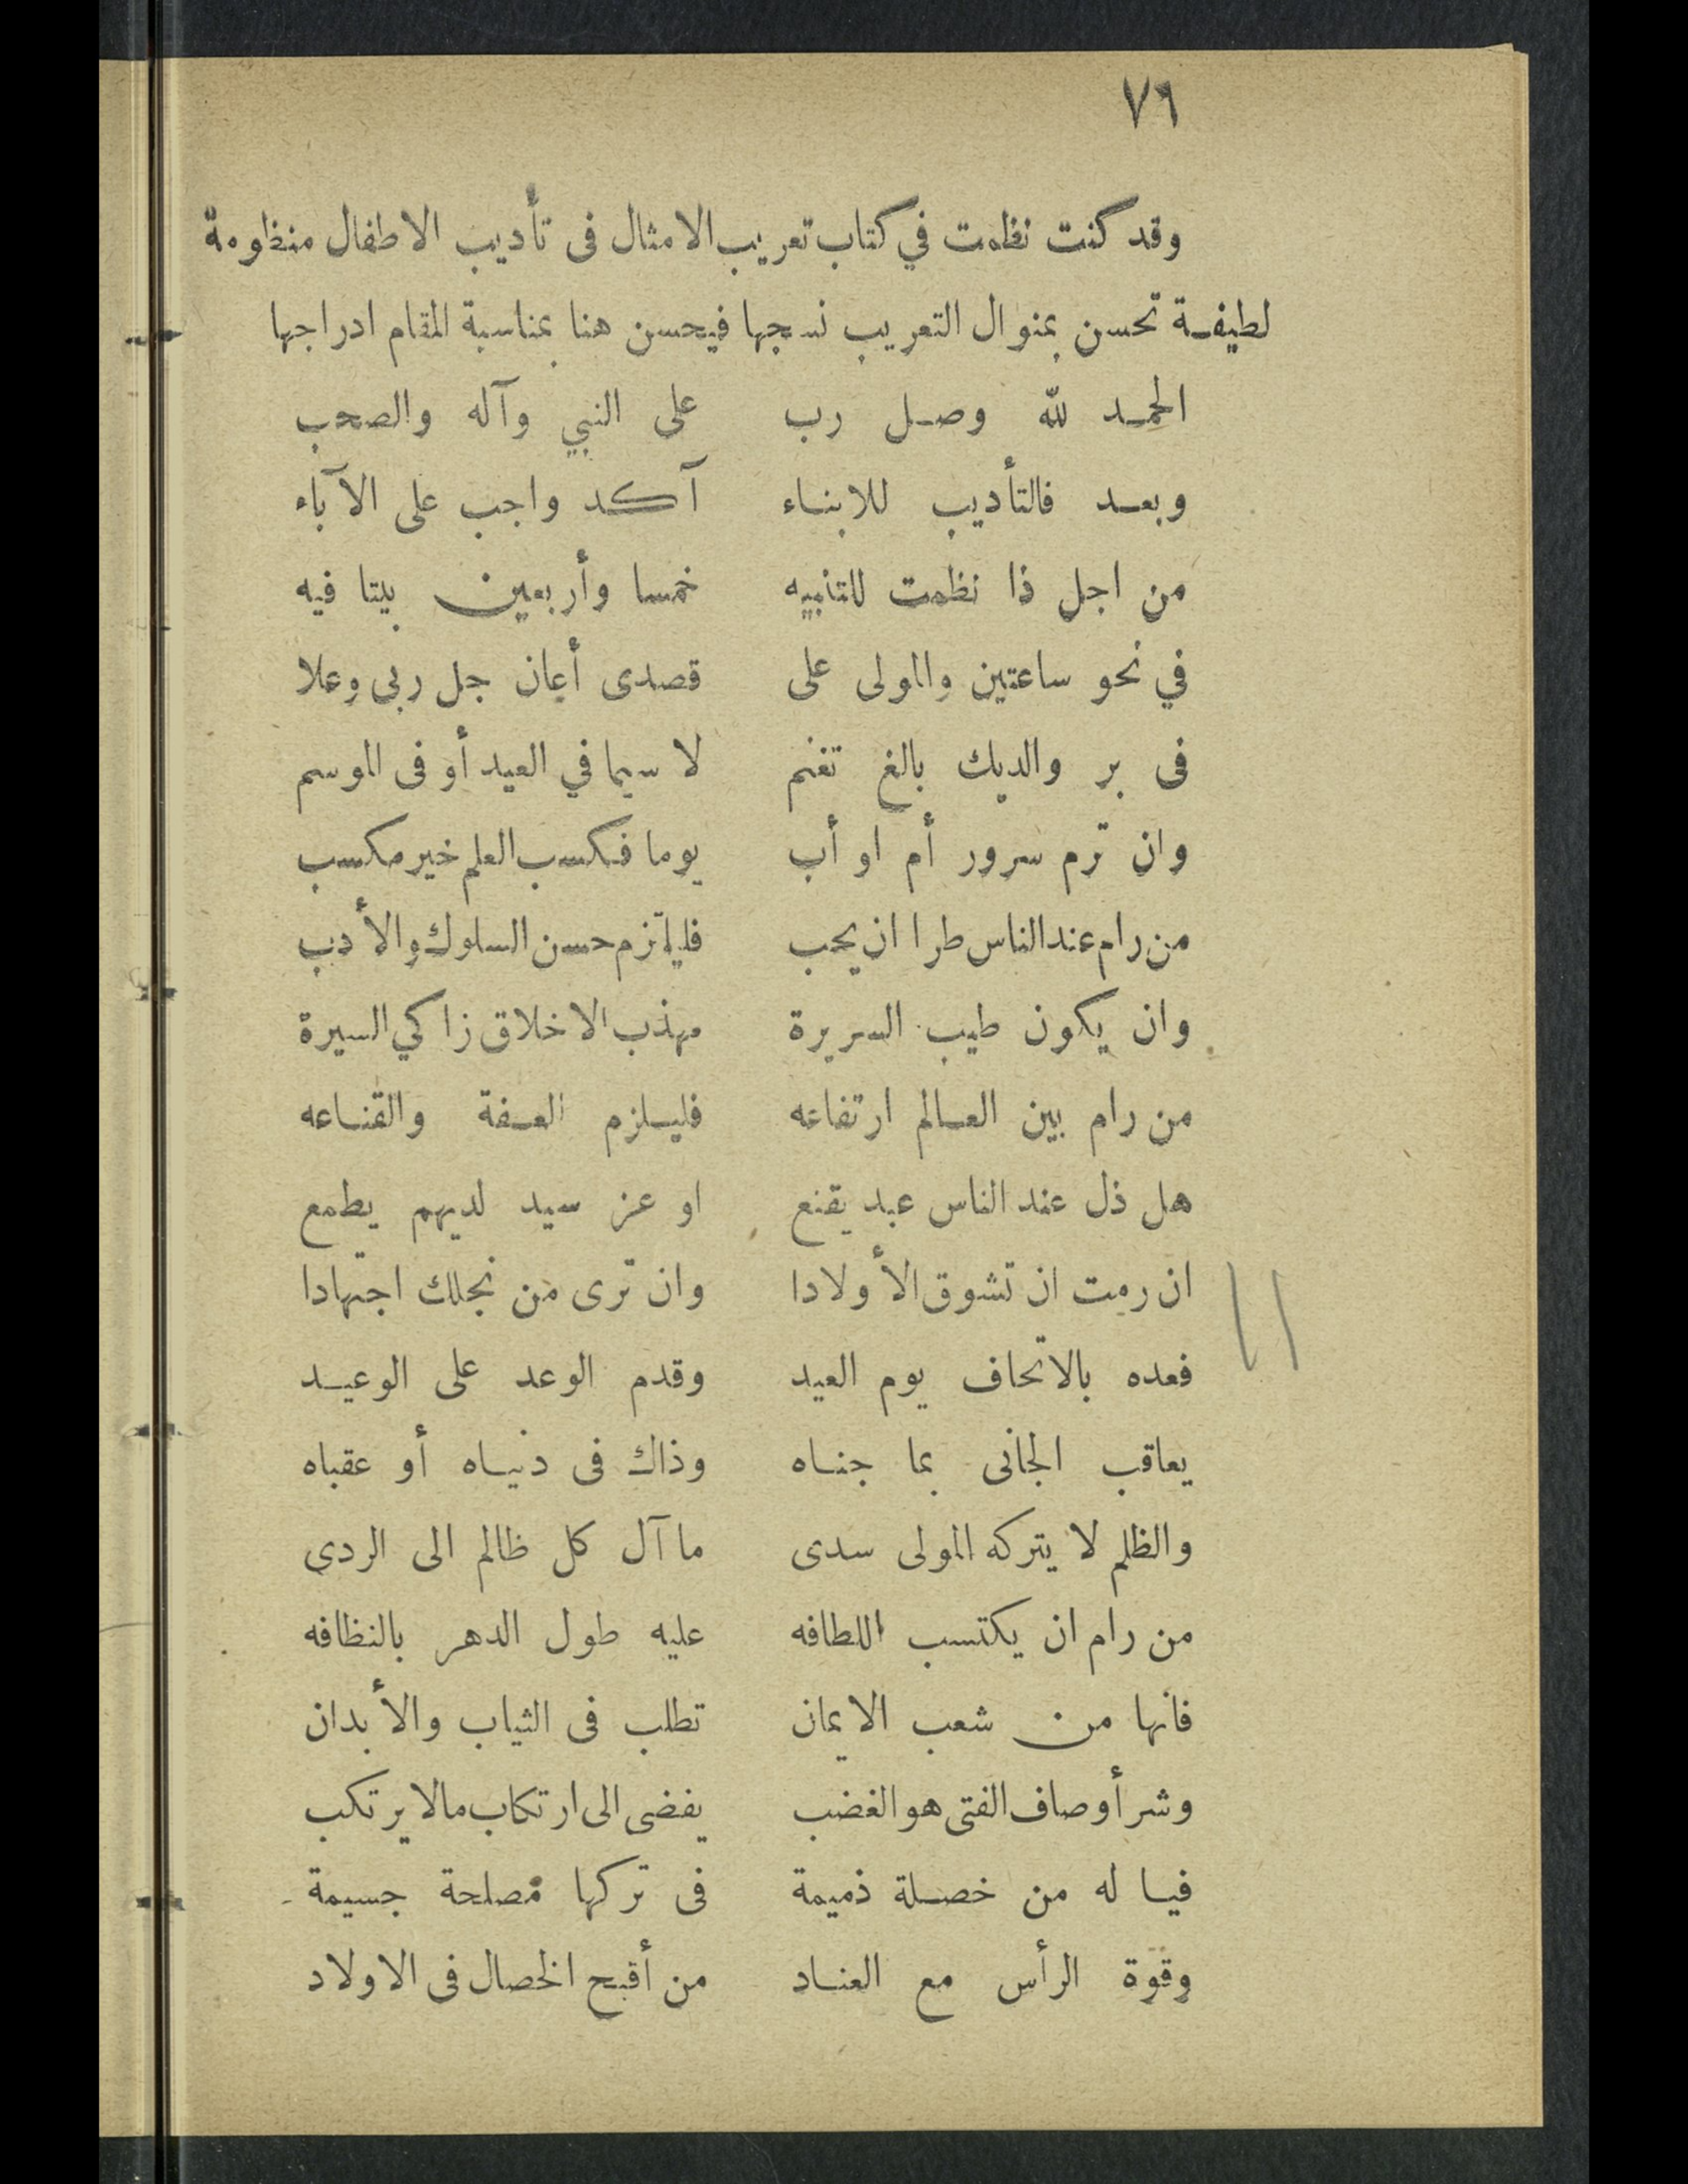 ٧٦
وقد كنت نظمت في كتاب تعريب الامثال فى تأديب الاطفال منظومة
لطيفة تحسن بمنوال التعريب نسجها فيحسن هنا بمناسبة المقام ادراجها
الحمد لله وصل رب على النبي وآله والصحب
وبعد فالتأديب للابناء آكد واجب على الآباء
من اجل ذا نظمت للتنبيه خمسا وأربعين بيتا فيه
في نحو ساعتين والمولى على قصدى أعان جل ربى وعلا
فى بر والديك بالغ تغنم لا سيما في العيد أو فى الموسم
وان ترم سرور أم او أب يوما فكسب العلم خير مكسب
من رام عند الناس طرا ان يحب فليلتزم حسن السلوك والأدب
وان يكون طيب السريرة مهذب الاخلاق زاكي السيرة
من رام بين العالم ارتفاعه فليلزم العفة والقناعه
هل ذل عند الناس عبد يقنع او عز سيد لديهم يطمع
ان رمت ان تشوق الأولادا وان ترى من نجلك اجتهادا
فعده بالاتحاف يوم العيد وقدم الوعد على الوعيد
يعاقب الجانى بما جناه وذاك فى دنياه أو عقباه
والظلم لا يتركه المولى سدى ما آل كل ظالم الى الردى
من رام ان يكتسب اللطافه عليه طول الدهر بالنظافه
فانها من شعب الايمان تطلب فى الثياب والأبدان
وشر أوصاف الفتى هو الغضب يفضى الى ارتكاب مالا يرتكب
فيا له من خصلة ذميمة فى تركها مصلحة جسيمة
وقوة الرأس مع العناد من أقبح الخصال فى الاولاد